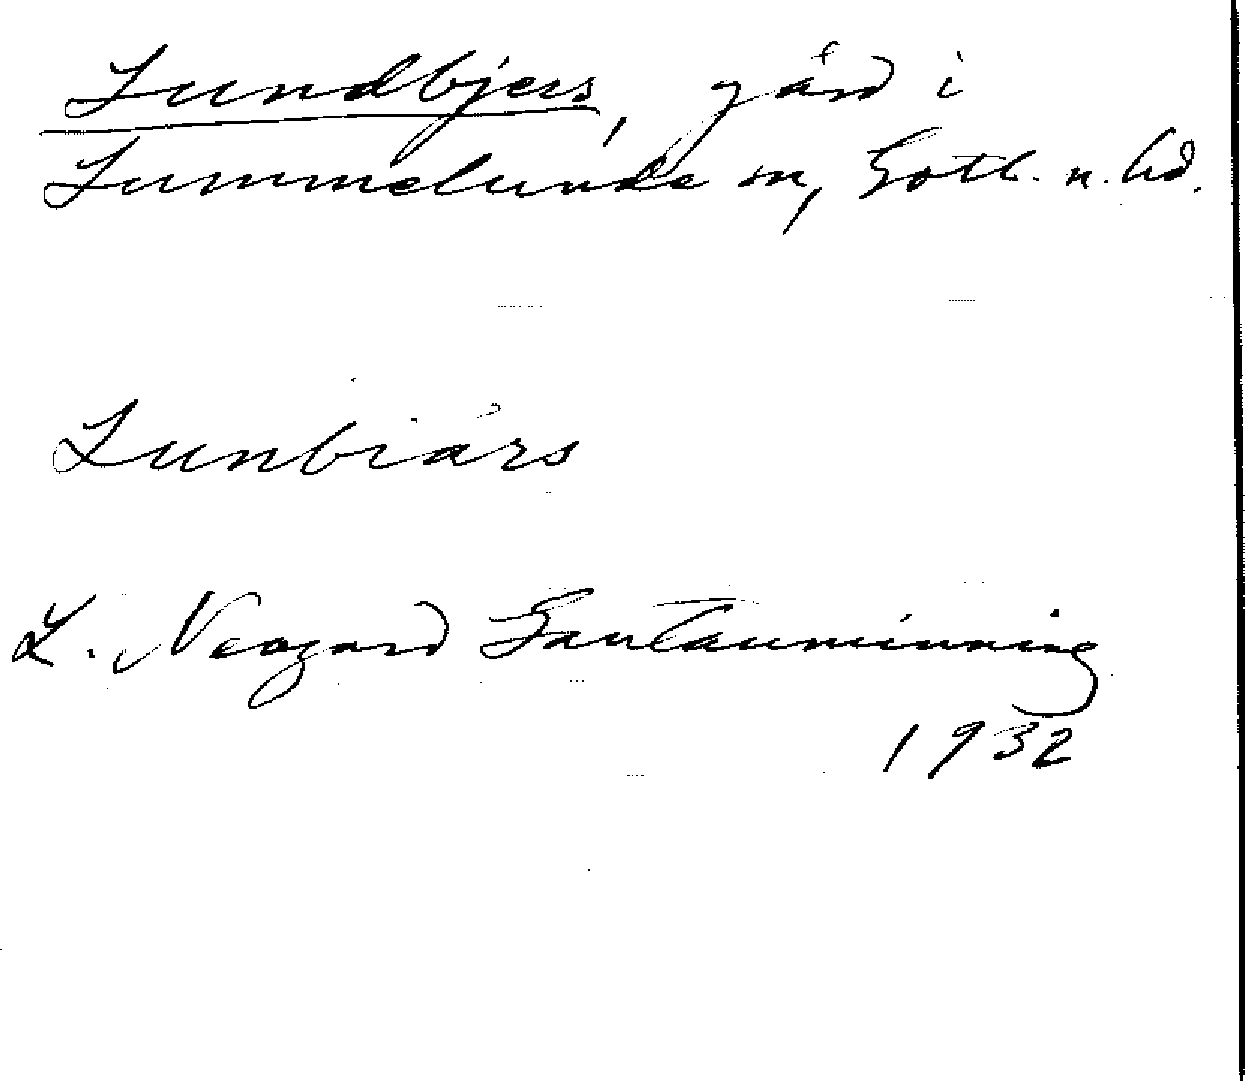 Lundbjers, gård i
Lummelunda sn, Gotl. n. hd.
Lunbiárs
L. Neogard Gautauminning
1932